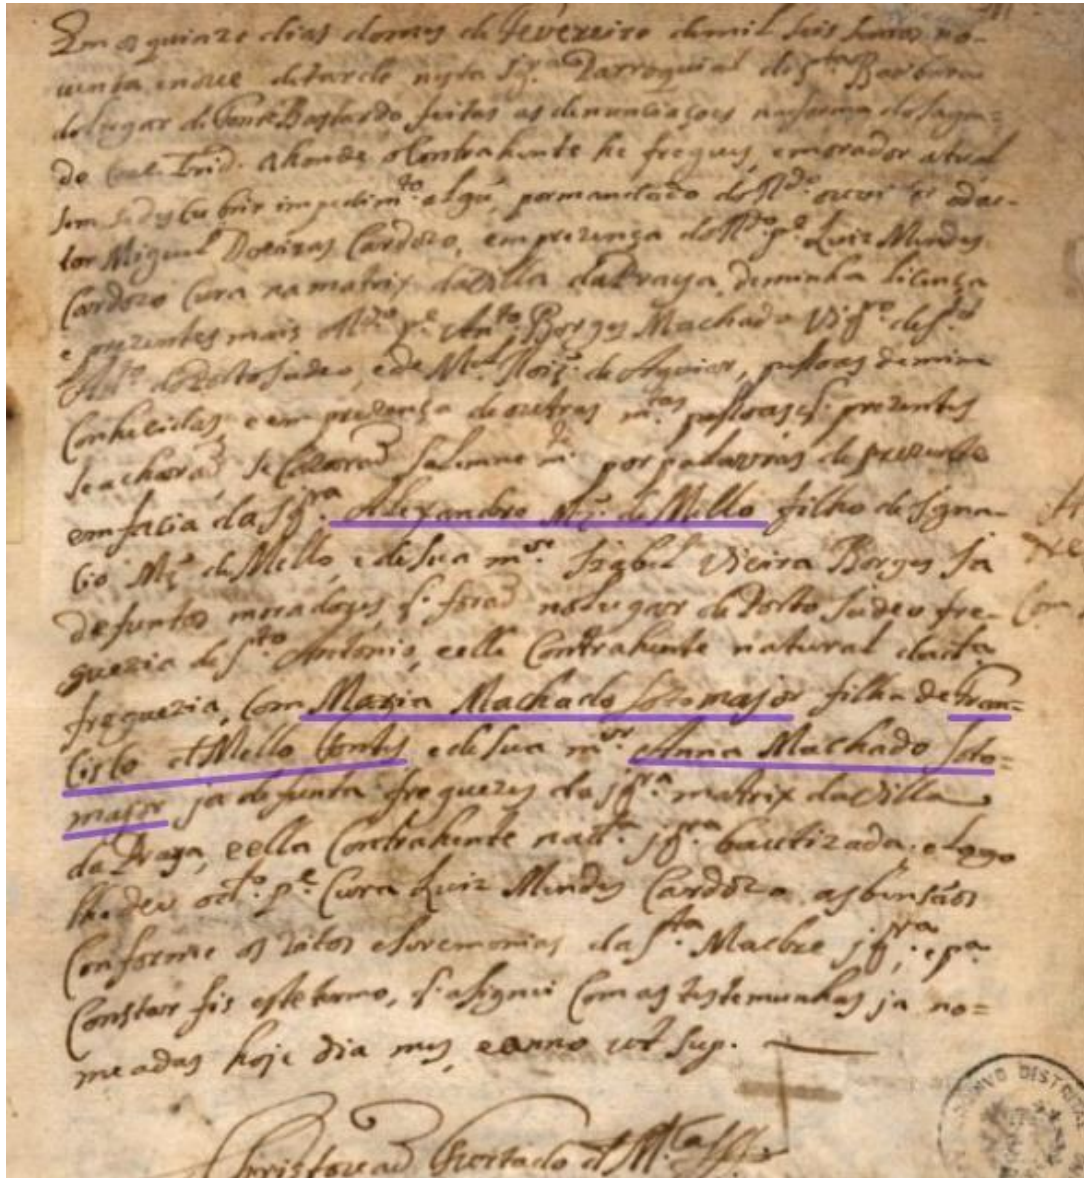 Em os quinze dias do mes de fevereiro de mil seis sentos no-
venta e nove de tarde nesta Igra Parroquial de Sta Barbara
do lugar de fonte Bastardo feitas as denunciaçoes na forma do sagra=
do Con. Trid. ahonde o Contrahente he fregues, e morador atual
sem se descubrir impedimto algũ, por mandado do Rdo ouvor o doc-
tor Miguel Cardozo, em prezença do Rdo pe Luis Mendes
Cardozo Cura na matrix da Villa da Praya, de minha licença
e prezentes mais o Rdo pe Anto Borges Machado Vigro de Sto
Anto do Porto Judeu, e de Mel Roiz de Aguiar, pessoas de mim
Conhecidas, e em prezença de outras mtas pessoas q. prezentes
se acharaõ se Cazaraõ Solemne mte por palavras de prezente
em facia da Igra Alexandre Mz. de Mello filho de Igna-
cio Mz. de Mello, e de sua mer Izabel Vieira Borges ja
defuntos moradores q. foraõ no lugar do Porto Judeu fre-
guezia de Sto Antonio, e elle Contrahente natural da dta
freguezia, Com Maria Machado Soto major filha de Fran=
cisco de Mello fontes e de sua mer Anna Machado Soto=
major ja defunta freguezes da Igra matrix da Villa
da Praya, e ella Contrahente na dta Igra bautizada. e Logo
lhe deu o dto pe Cura Luis Mendes Cardozo as bensãos
Conforme os ritos e seremonias da Sta Madre Igra, e pa
Constar fis este termo, q. asignei Com as testemunhas ja no=
meadas hoje dia mes, e anno ut sup.
Christovaõ Furtado d